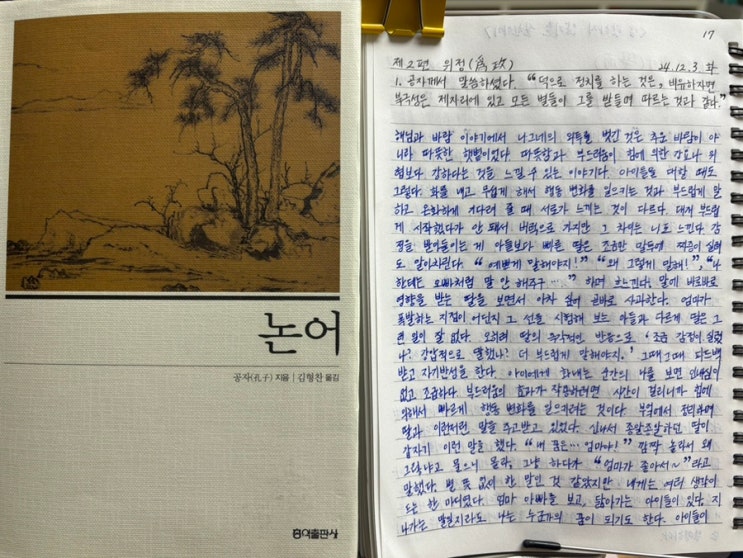 논어
공자(孔子) 지음 | 김형찬 옮김
홍익출판사
17
제2편 위정(爲政) 24.12.3 화
1. 공자께서 말씀하셨다. "덕으로 정치를 하는 것은, 비유하자면
북극성은 제자리에 있고 모든 별들이 그를 받들며 따르는 것과 같다."
해님과 바람 이야기에서 나그네의 외투를 벗긴 것은 추운 바람이 아
니라 따뜻한 햇볕이었다. 따뜻함과 부드러움이 힘에 의한 강요나 위
협보다 강하다는 것을 느낄 수 있는 이야기다. 아이들을 대할 때도
그렇다. 화를 내고 무섭게 해서 행동 변화를 일으키는 것과 부드럽게 말
하고 온화하게 기다려 줄 때 서로가 느끼는 것이 다르다. 대게 부드럽
게 시작했다가 안 돼서 버럭으로 가지만 그 차이는 나도 느낀다. 감
정을 받아들이는 게 아들보다 빠른 딸은 조금만 말투에 짜증이 실려
도 알아차린다. "예쁘게 말해야지!" "왜 그렇게 말해!", "나
한테는 오빠처럼 말 안 해주구…." 하며 흐느낀다. 말에 바로바로
영향을 받는 딸을 보면서 아차 싶어 곧바로 사과한다. 엄마가
폭발하는 지점이 어딘지 그 선을 시험해 보는 아들과 다르게 딸은 그
런 일이 잘 없다. 오히려 딸의 즉각적인 반응으로 '조금 감정이 실렸
나? 강압적으로 말했나? 더 부드럽게 말해야지.' 그때그때 피드백
받고 자기반성을 한다. 아이에게 화내는 순간의 나를 보면 인내심이
없고 조급하다. 부드러움의 효과가 작용하려면 시간이 걸리니까 힘에
의해서 빠르게 행동 변화를 일으키려는 것이다. 부엌에서 정리하며
딸과 이런저런 말을 주고받고 있었다. 신나서 종알종알하던 딸이
갑자기 이런 말을 했다. "내 꿈은… 엄마야!" 깜짝 놀라서 왜
그러냐고 물으니 몰라, 그냥 하다가 "엄마가 좋아서~"라고
말했다. 별 뜻 없이 한 말인 것 같았지만 내게는 여러 생각이
드는 한 마디였다. 엄마 아빠를 보고, 닮아가는 아이들이 있다. 지
나가는 말일지라도 나는 누군가의 꿈이 되기도 한다. 아이들이